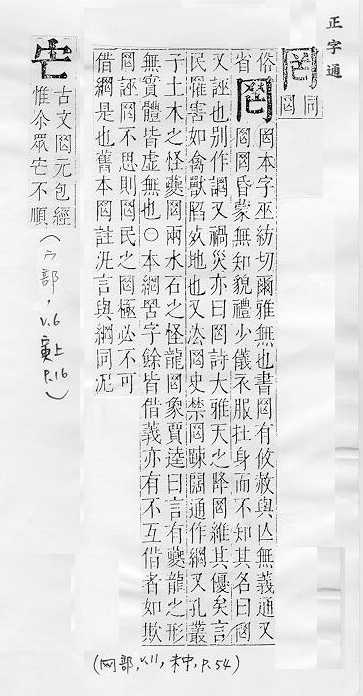 正字通
罔
同
罔
俗
省
罔
罔本字巫紡切爾雅無也書罔有攸赦與亾無義通又
罔罔昏蒙無知貌禮少儀衣服在身而不知其名曰罔
又誣也別作誷又禍災亦曰罔詩大雅天之降罔維其優矣言
民罹害如禽獸陷地也又法罔史禁罔疎闊通作網又孔叢
子土木之怪夔罔兩水石之怪龍罔象賈逵曰言有夔龍之形
無實體皆虛無也○本網罟字餘皆借義亦有不互借者如欺
罔誣罔不思則罔民之罔極必不可
借網是也舊本罔註汎言與網同泥
(网部, v.11, 未中, P.54)
古文罔元包經
惟尒眾不順
(宀部, v.6 寅上 P.16)